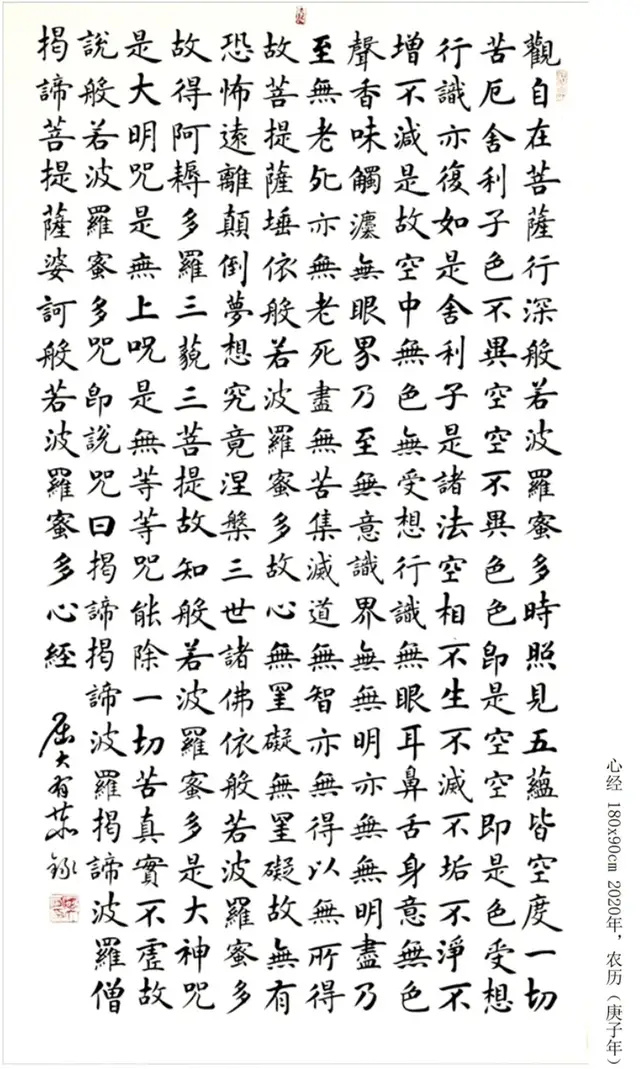 觀自在菩薩行深般若波羅蜜多時照見五蘊皆空度一切
苦厄舍利子色不異空空不異色色即是空空即是色受想
行識亦復如是舍利子是諸法空相不生不滅不垢不淨不
增不減是故空中無色無受想行識無眼耳鼻舌身意無色
聲香味觸灋無眼界乃至無意識界無無明亦無無明盡乃
至無老死亦無老死盡無苦集滅道無智亦無得以無所得
故菩提薩埵依般若波羅蜜多故心無罣礙無罣礙故無有
恐怖遠離顛倒夢想究竟涅槃三世諸佛依般若波羅蜜多
故得阿耨多羅三藐三菩提故知般若波羅蜜多是大神咒
是大明咒是無上呪是無等等咒能除一切苦真實不虛故
說般若波羅蜜多咒即說咒曰揭諦揭諦波羅揭諦波羅僧
揭諦菩提薩婆訶般若波羅蜜多心經
屈大有恭錄
心经 180x90cm 2020年，农历（庚子年）